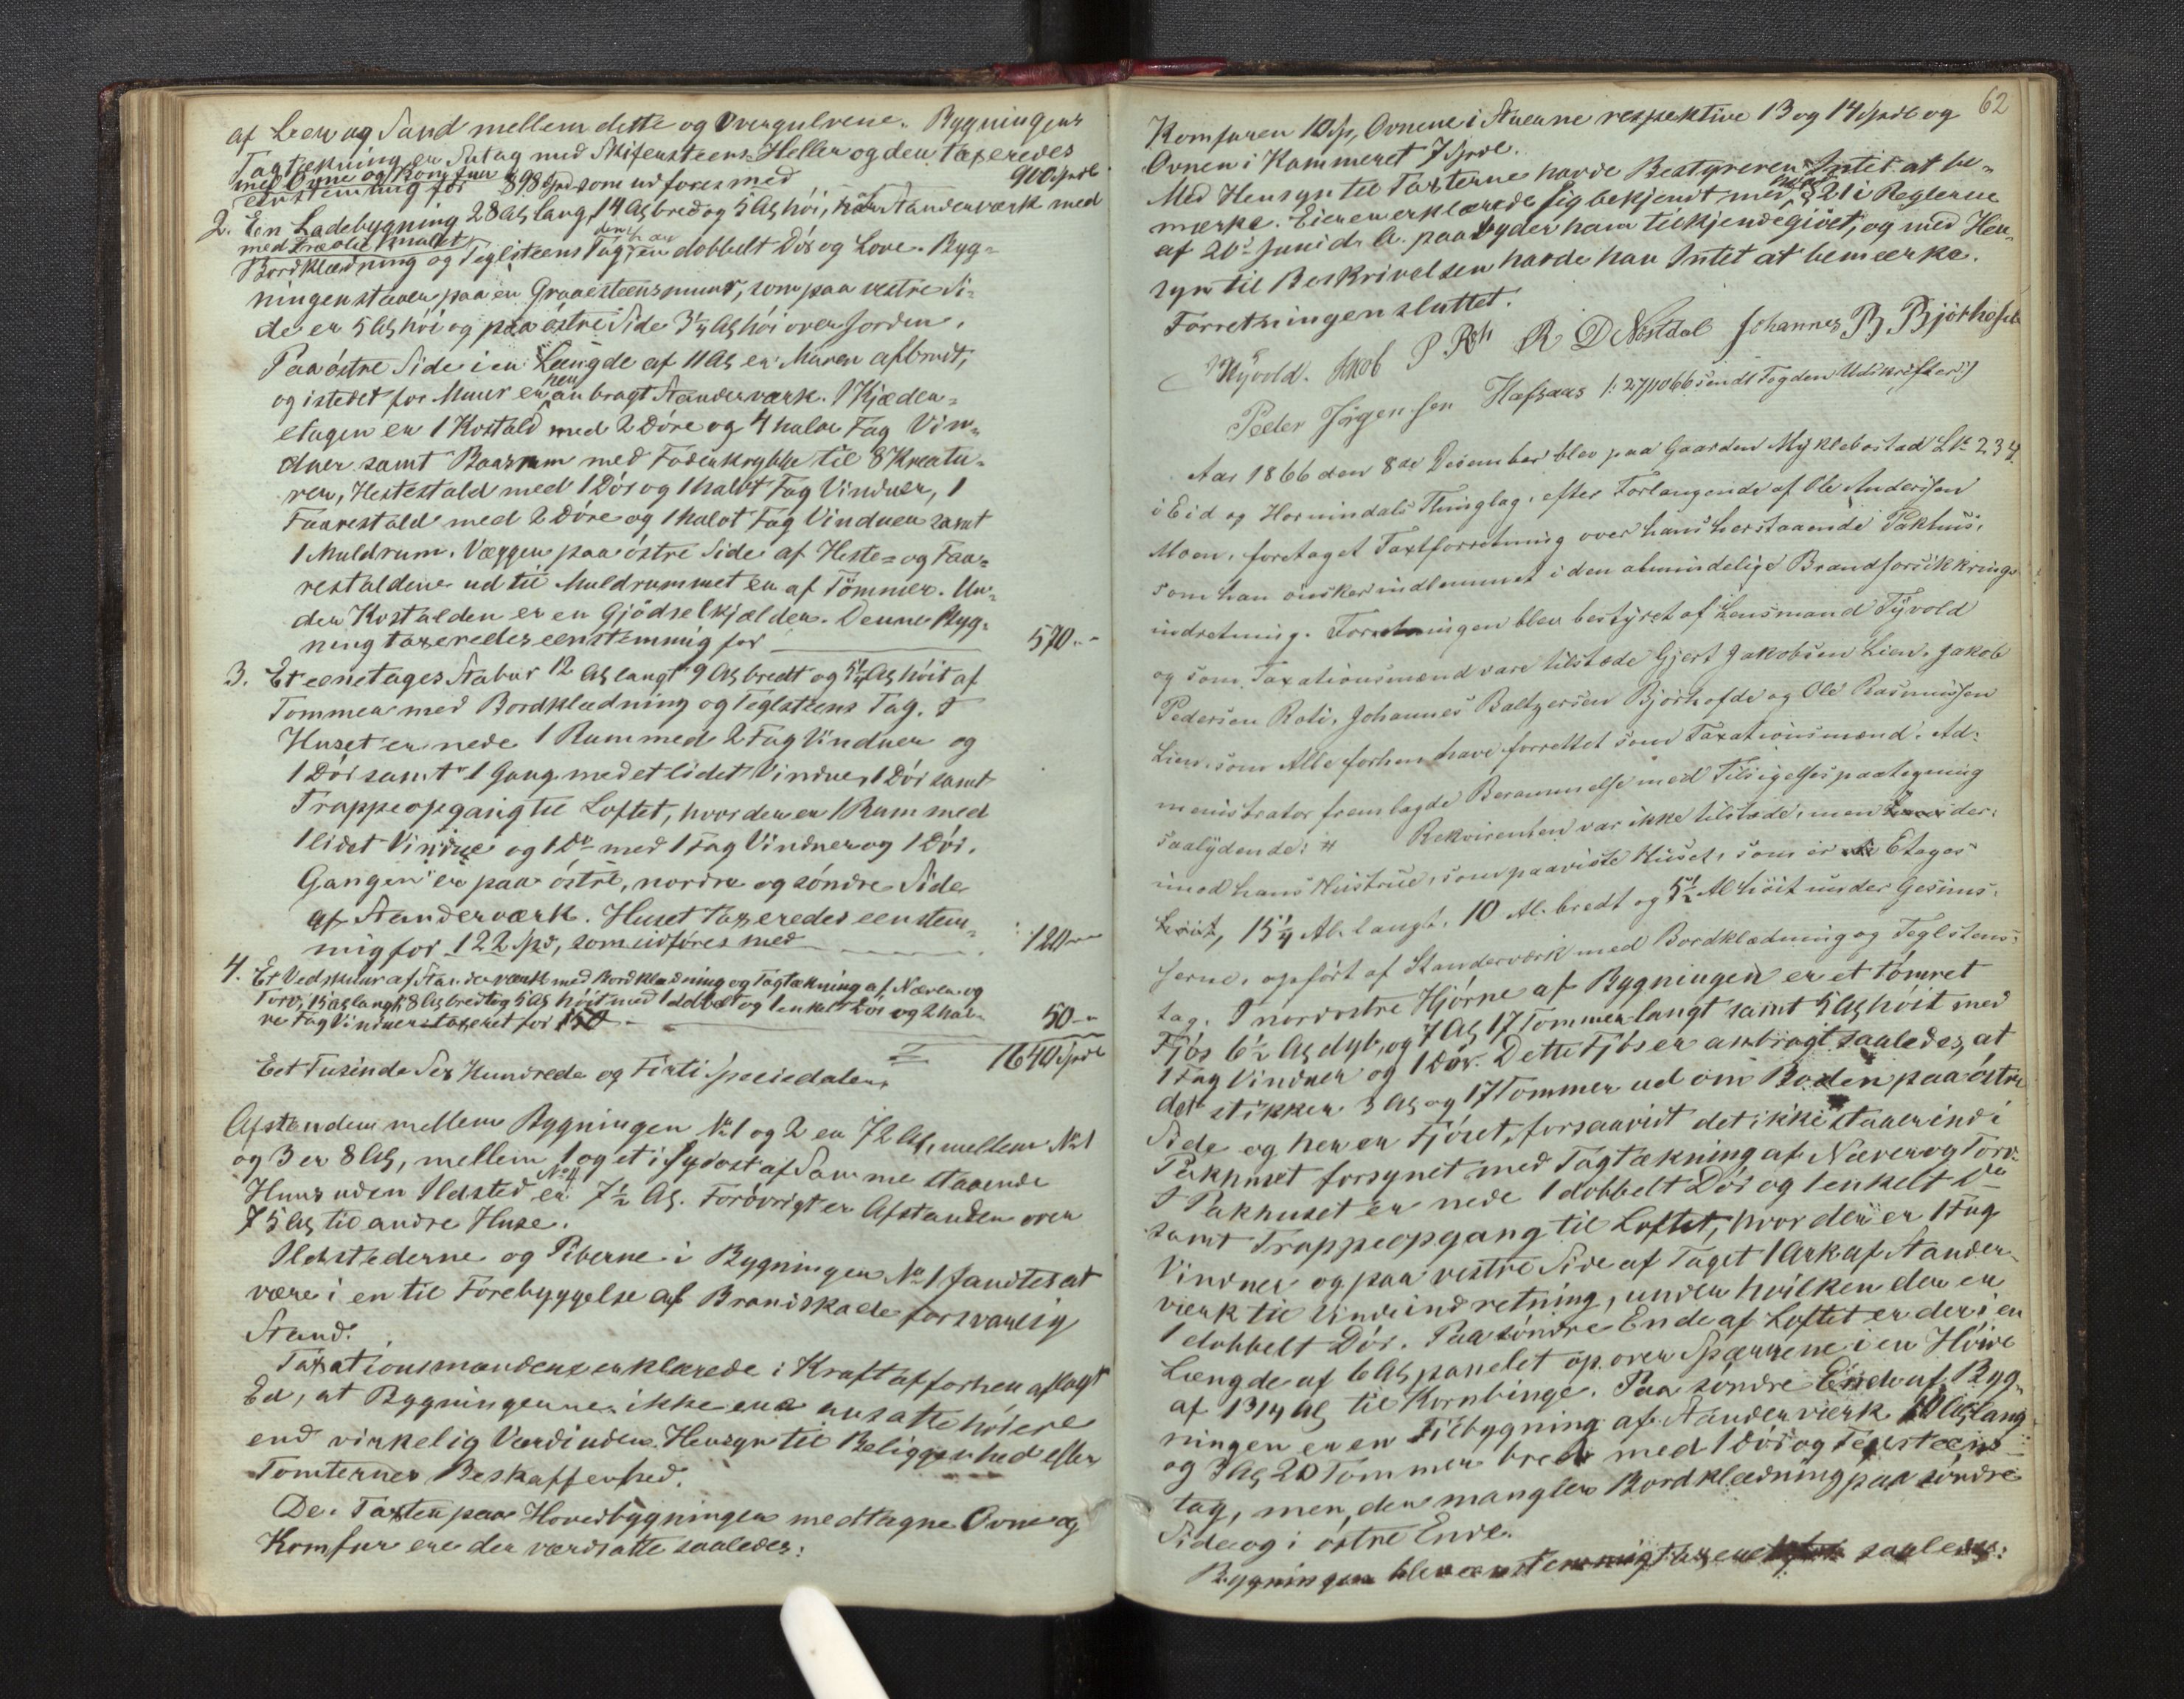 af Leer og Sand mellem dette og Overgulvene. Bygningens
Tagtækning er Sutag med Skifersteens Heller og den taxeredes
med Ovne og Komfur
eenstemmig for 898 Spd som udføres med 900 Spdl
2. Een Ladebygning 28 Al lang, 14 Al bred og 5 Al høi, af Standerværk med
med træolie malet
Bordklædning og Teglsteens Tag, den har en dobbelt Dør og Love. Byg-
ningen staaer paa en Graaesteensmuur, som paa vestre Si-
de er 5 Al høi og paa østre Side 3 1/4 Al høi over Jorden.
Paa østre Side i en Længde af 11 Al er Muren afbrudt,
og istedet for Muur er her anbragt Standerværk. I Kjælder-
etagen er 1 Kostald med 2 Døre og 4 halve Fag Vin-
duer samt Baasrum med Foderkrybbe til 8 Kreatu-
rer, Hestestald med 1 Dør og 1 halvt Fag Vinduer, 1
Faarestald med 2 Døre og 1 halvt Fag Vinduer samt
1 Muldrum. Væggen paa østre Side af Heste- og Faa-
restaldene ud til Muldrummet er af Tømmer. Un-
der Kostalden er en Gjødselkjælder. Denne Byg-
ning taxeredes eenstemmig for 570 "-
3. Et eenetages Stabur 12 Al langt 9 Al bredt og 5 1/4 Al høit af
Tømmer med Bordklædning og Teglsteens Tag. I
Huset er nede 1 Rum med 2 Fag Vinduer og
1 Dør samt 1 Gang med et lidet Vindue, 1 Dør samt
Trappeopgang til Loftet, hvor der er 1 Rum med
1 lidet Vindue og 1 Do med 1 Fag Vinduer og 1 Dør.
Gangen er paa østre, nordre og søndre Side
af Standerværk. Huset taxeredes eenstem-
mig for 122 Spd, som udføres med 120 "-
4. Et Vedskuur af Standerværk med Bordklædning og Tagtækning af Næver og
Torv, 15 Al langt, 8 Al bredt og 5 Al høit med 1 dobbelt og 1 enkelt Dør og 2 hal-
ve Fag Vinduer taxeret for 50 - 50 "-
1640 Spdl
Eet Tusinde Sex Hundrede og Firti Speciedaler,
Afstanden mellem Bygningen No 1 og 2 er 72 Al, mellem No 1
og 3 er 8 Al, mellem 1 og et i Sydost af Samme staaende
Huus uden Ildsted No 4 er 7 1/2 Al. Forøvrigt er Afstanden over
75 Al til andre Huse.
Ildstederne og Piberne i Bygningen No 1 fandtes at
være i en til Forebyggelse af Brandskade forsvarlig
Stand.
Taxationsmændene erklærede i Kraft af forhen aflagt
Ed, at Bygningerne ikke ere ansatte høiere
end virkelig Værdi uden Hensyn til Beliggenhed eller
Tomternes Beskaffenhed.
De i Taxten paa Hovedbygningen medtagne Ovne og
Komfur ere der værdsatte saaledes:
62
Komfuren 10 Sp, Ovnene i Stuerne respektive 13 og 14 Spdl og
Ovnen i Kammeret 7 Spdl.
Med Hensyn til Taxterne havde Bestyreren Intet at be-
mærke. Eieren erklærede sig bekjendt med hvad § 21 i Reglerne
af 20de Juni d. A. paabyder ham tilkjendegivet, og med Hen-
syn til Beskrivelsen havde han Intet at bemærke.
Forretningen sluttet.
Tyvold. Jakob P Roti R D Nøstdal Johannes B Bjørhofde
Peder Jørgensen Hafsaas /: 27/12 66 sendt Fogden Udskrifter :/
Aar 1866 den 8de Desember blev paa Gaarden Myklebostad LN 234
i Eid og Hornindals Thinglag, efter Forlangende af Ole Anderssen
Moen, foretaget Taxtforretning over hans herstaaende Pakhus,
som han ønsker indlemmet i den almindelige Brandforsikkrings
indretning. Forretningen blev bestyret af Lensmand Tyvold
og som Taxationsmænd vare tilstede Gjert Jakobsen Lien, Jakob
Pedersen Roti, Johannes Baltzersen Bjørhofde og Ole Rasmussen
Lien, som Alle forhen have forrettet som Taxationsmænd. Ad-
menistrator fremlagde Berammelse med Tilsigelsespaategning
saalydende: # Rekvirenten var ikke tilstede, men der-
imod hans Hustrue, som paaviste Huset, som er Etages
høit, 15 1/4 Al. langt, 10 Al. bredt og 5 1/2 Al høit under Gesims-
serne, opført af Standerværk med Bordklædning og Teglstens-
tag. I nordostre Hjørne af Bygningen er et tømret
Fjøs 6 1/2 Al dyb, og 7 Al 17 Tommer langt samt 5 Al høit med
1 Fag Vinduer og 1 Dør. Dette Fjøs er anbragt saaledes, at
det stikker 3 Al og 17 Tommer ud om Boden paa østre
Side og her er Fjøset, forsaavidt det ikke staaer ind i
Pakhuset forsynet med Tagtækning af Næver og Torv.
I Pakhuset er nede 1 dobbelt Dør og 1 enkelt Do
samt Trappeopgang til Loftet, hvor der er 1 Fag
Vinduer og paa vestre Side af Taget 1 Ark af Stander-
værk til Vindeindretning, under hvilken der er
1 dobbelt Dør. Paa søndre Ende af Loftet er der i en
Længde af 6 Al panelet op over Spærrene i en Høide
af 1 3/4 Al til Kornbinge. Paa søndre Ende af Byg-
ningen er en Tilbygning af Standerværk 10 Al lang
og 3 Al 20 Tommer bred med 1 Dør og Teglsteens
tag, men der mangler Bordklædning paa søndre
Side og i østre Ende.
Bygningen blev eenstemmigt taxeret saaledes: